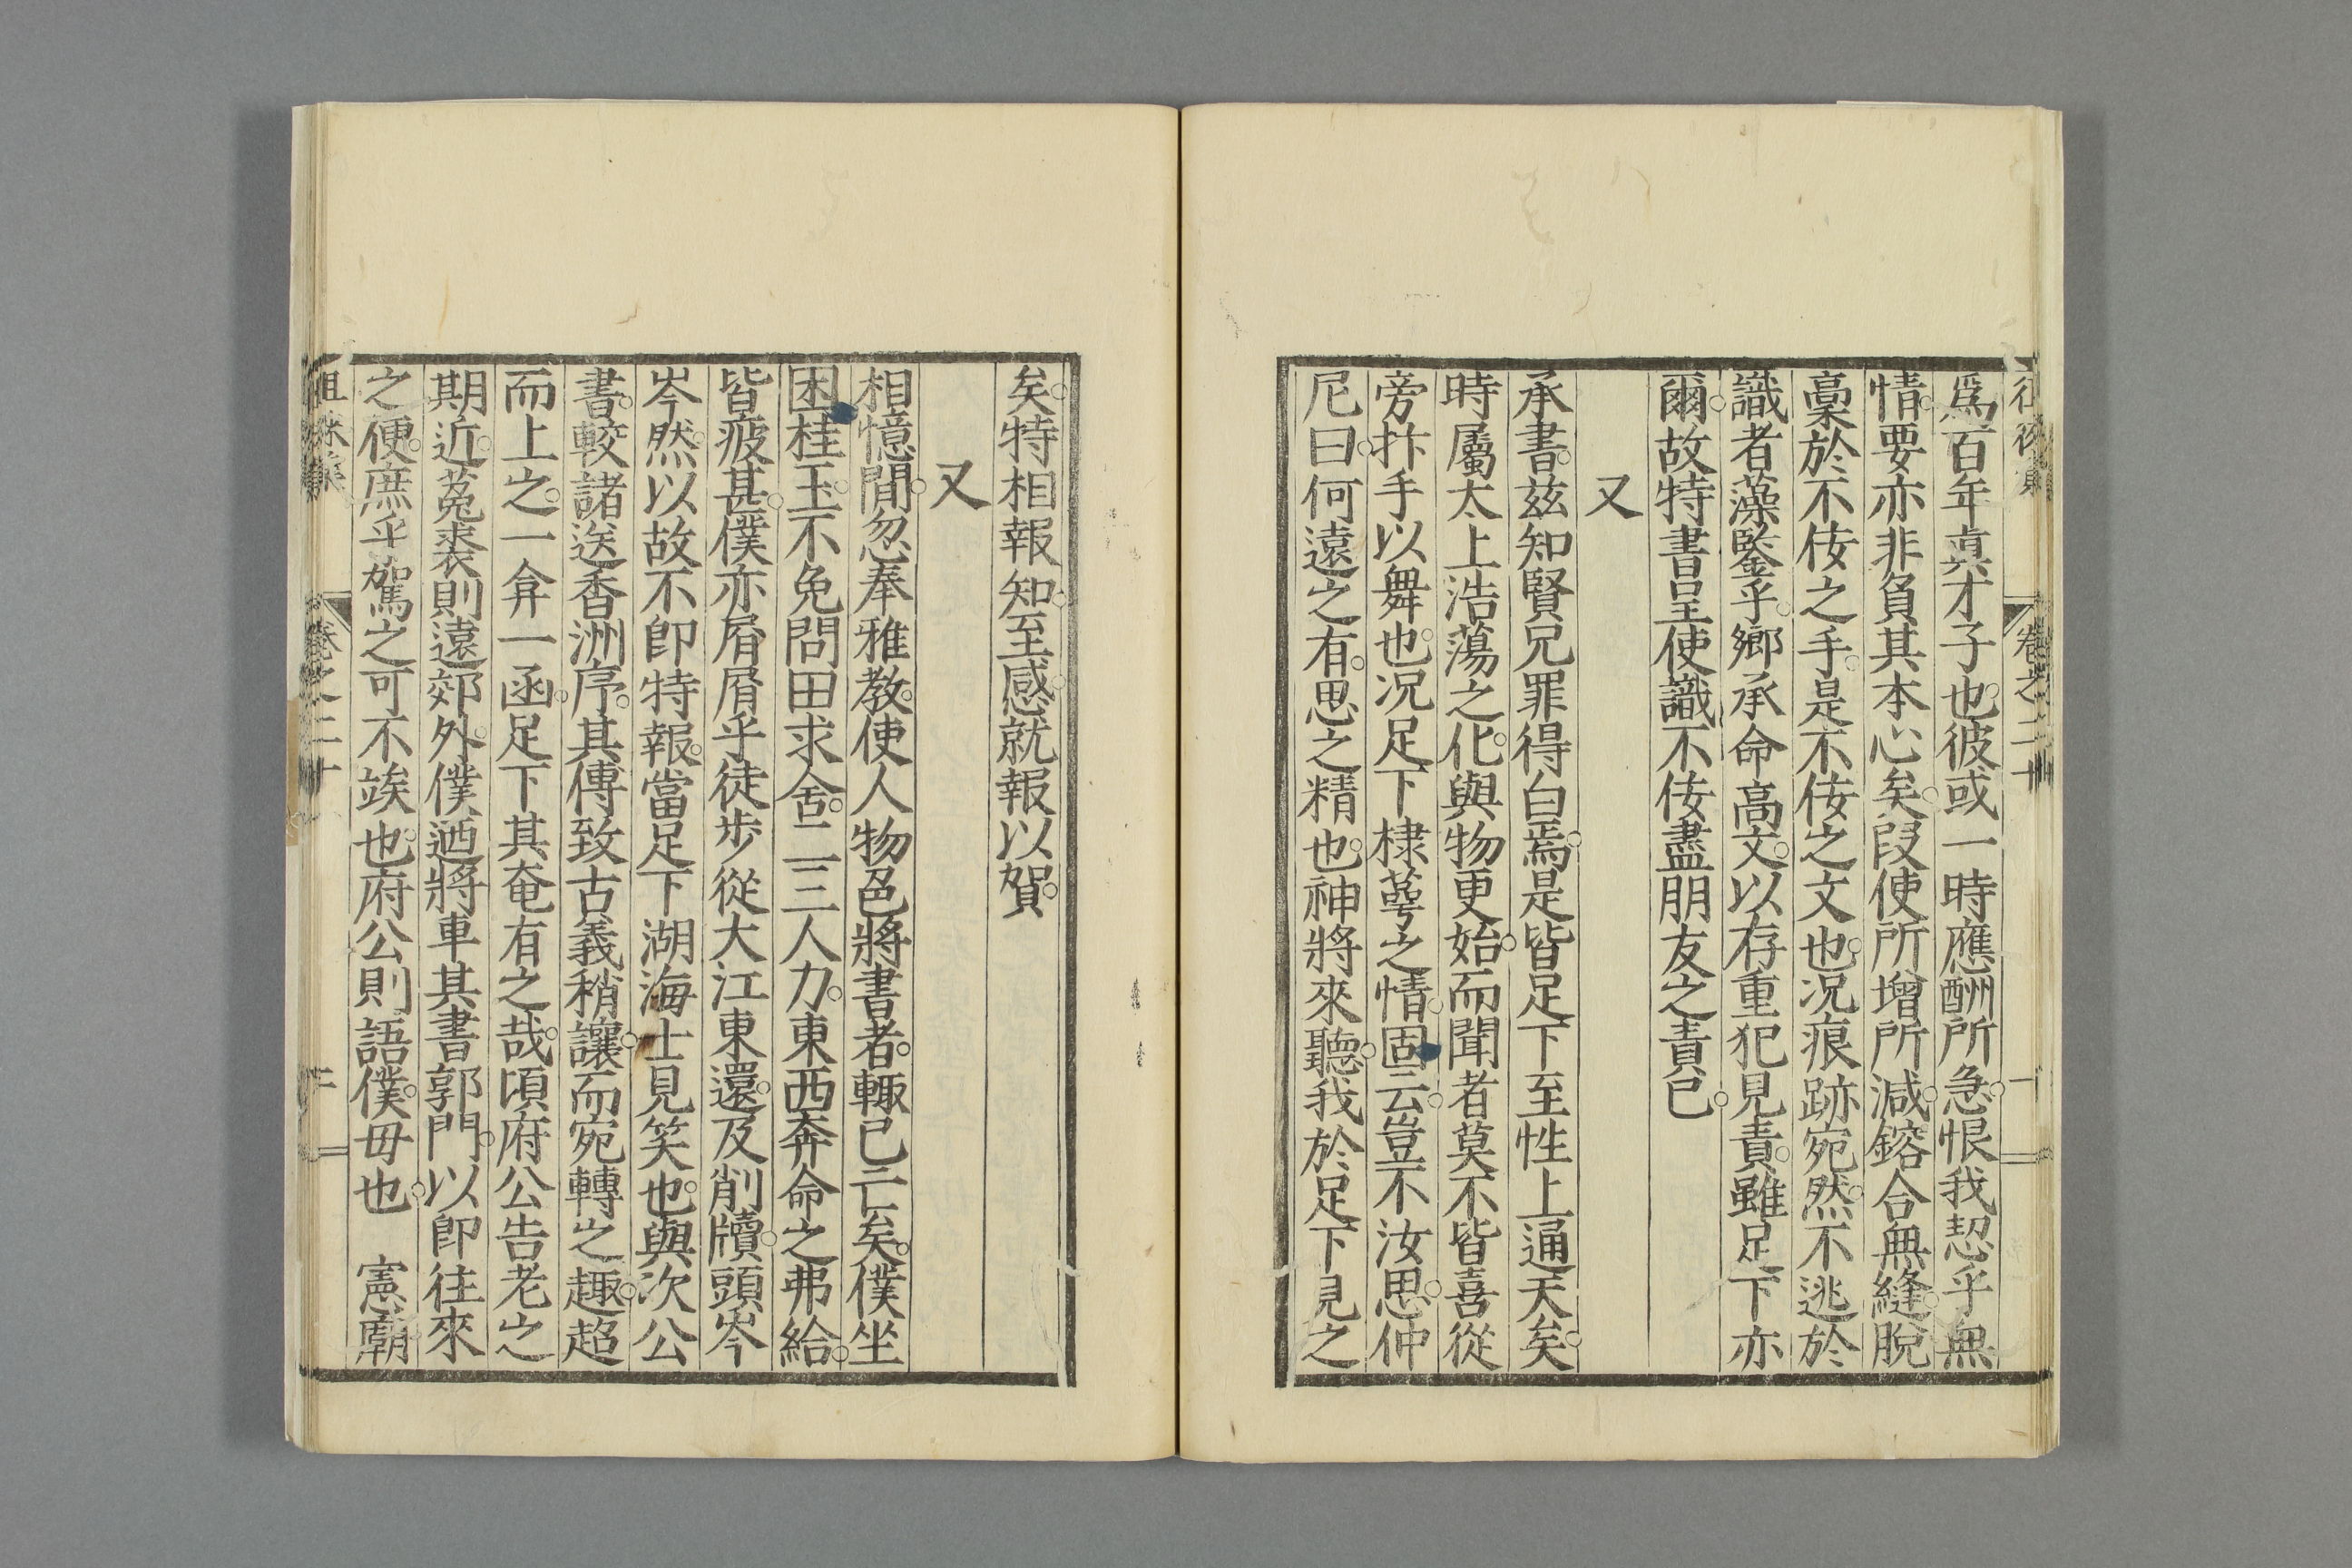 爲百年眞才子也。彼或一時應酬所急。恨我恝乎無
情。要亦非負其本心矣。叚使所增所減。鎔合無縫。脫
稾於不佞之手。是不佞之文也。况痕跡宛然。不逃於
識者藻鑒乎。鄉承命高文。以存重犯見責。雖足下亦
爾。故特書呈使識不佞盡朋友之責已。
又
承書。茲知賢兄罪得白焉。是皆足下至性上通天矣。
時屬太上浩蕩之化。與物更始。而聞者莫不皆喜從
旁抃手以舞也。况足下棣萼之情。固云。豈不汝思。仲
尼曰。何遠之有。思之精也。神將來聽。我於足下見之
矣。特相報知。至感。就報以賀。
又
相憶閒。忽奉雅教。使人物色將書者。輙已亡矣。僕坐
困桂玉。不免問田求舍。二三人力。東西奔命之弗給。
皆疲甚。僕亦屑屑乎徒步從大江東還。及削牘。頭岑
岑然。以故不卽特報。當足下湖海士見笑也。與次公
書。較諸送香洲序。其傳致古義稍讓。而宛轉之趣。超
而上之。一弇一函。足下其奄有之哉。頃府公告老之
期近。菟裘則遠郊外。僕迺將車其書郭門。以卽往來
之便。庶乎駕之可不竢也。府公則語僕。毋也。憲廟
徂徠集
卷之二十
二